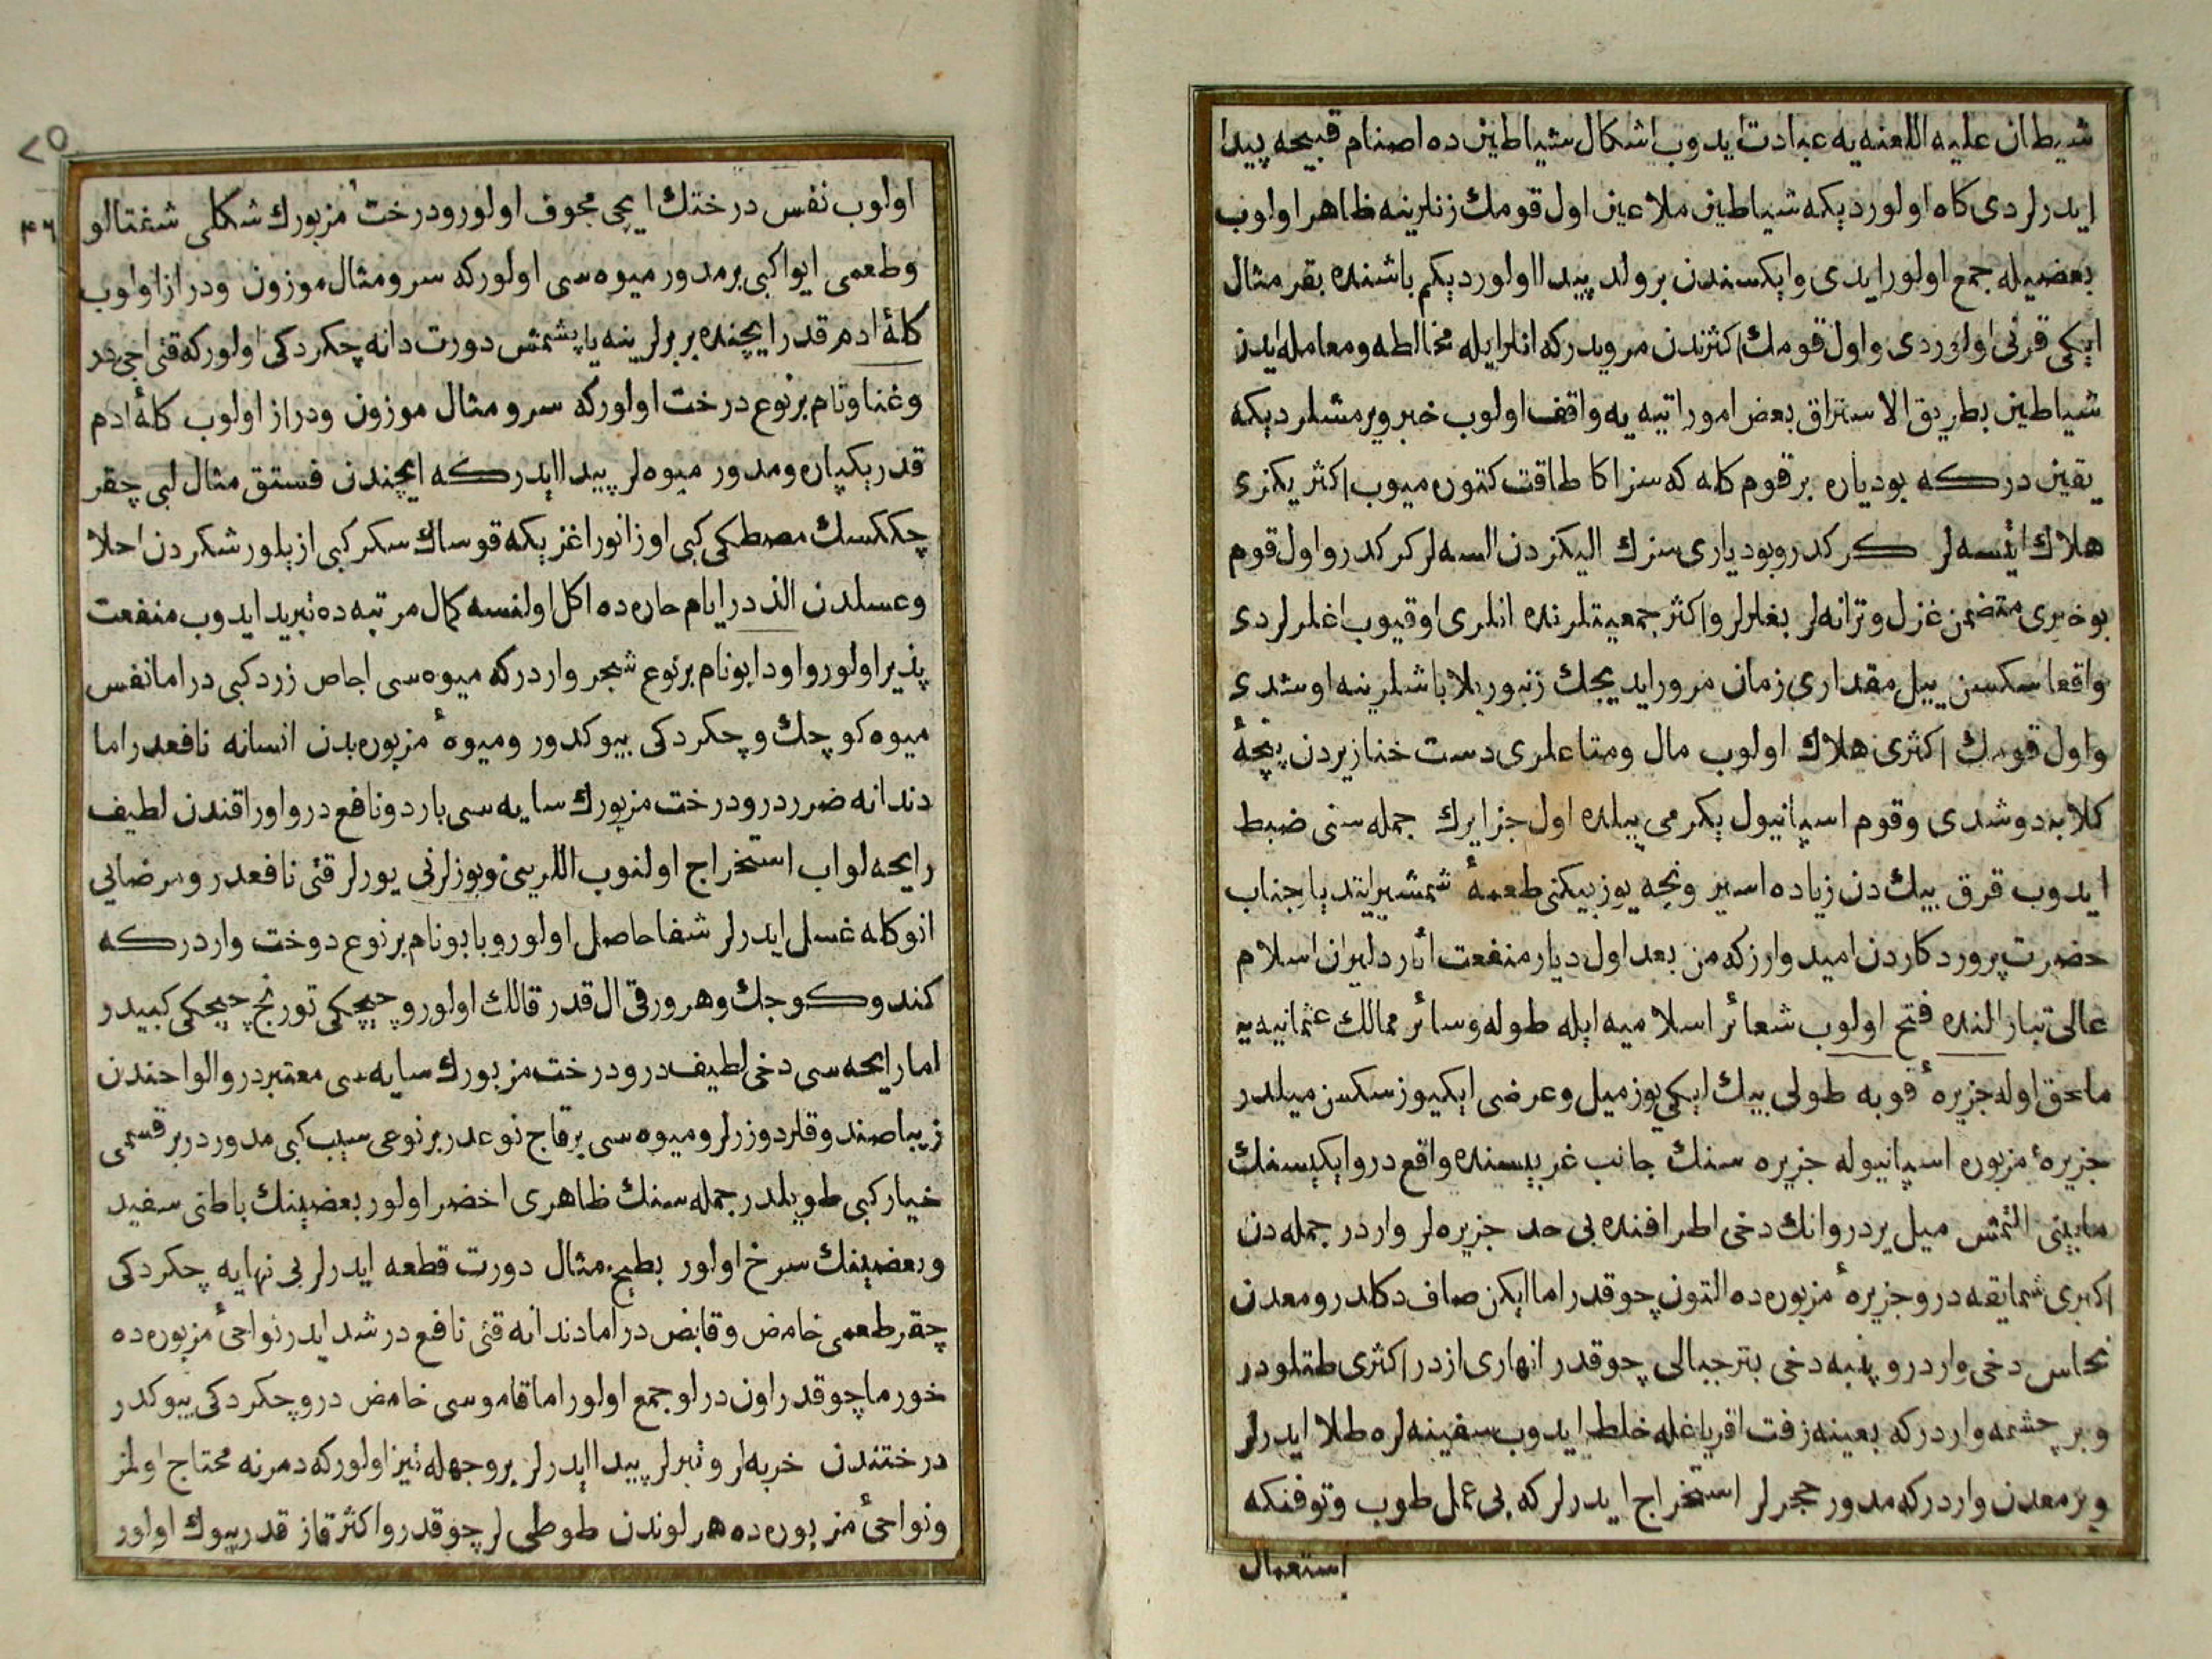 شیطان علیه اللعنه یه عبادت ایدوب اشکال شیاطین ده اصنام قبیحه پیدا
ایدرلردی کاه اولوردیکه شیاطین ملاعین اول قومك زنلرینه ظاهر اولوب
بعضیله جمع اولور ایدی وایکسندن بر ولد پیدا اولوردیکم باشنده بقر مثال
ایکی قرنی اولوردی واول قومك اکثرندن مرویدرکه انلر ایله مخالطه ومعامله ایدن
شیاطین بطریق الاستراق بعض امور اتیه یه واقف اولوب خبر ویرمشلر دیکه
یقین درکه بو دیاره بر قوم کله که سز اکا طاقت کتوره میوب اکثریکزی
هلاك ایتسه لر کرکدر وبو دیاری سزك الیکزدن السه لر کرکدر واول قوم
بو خبری متضمن غزل وترانه لر بغلرلر واکثر جمعیتلرنده انلری اوقیوب اغلرلردی
واقعا سکسن ییل مقداری زمان مرور ایدیجك زنبور بلا باشلرینه اوشدی
واول قومك اکثری هلاك اولوب مال ومتاعلری دست خنازیردن پنچهٔ
کلابه دوشدی وقوم اسپانیول یکرمی ییلده اول جزایرك جمله سنی ضبط
ایدوب قرق بیك دن زیاده اسیر ونچه یوز بیکنی طعمهٔ شمشیر ایتدیلر جناب
حضرت پروردکاردن امیدوارزکه من بعد اول دیار منفعت اثار دلیران اسلام
عالی تبار النده فتح اولوب شعائر اسلامیه ایله طوله وسائر ممالك عثمانیه یه
ملحق اوله جزیرهٔ قوبه طولی بیك ایکی یوز میل وعرضی ایکیوز سکسن میلدر
جزیرهٔ مزبوره اسپانیوله جزیره سنك جانب غربیسنده واقع در وایکیسنك
مابینی التمش میل یردر وانك دخی اطرافنده بی حد جزیره لر واردر جمله دن
اکبری شمایقه در وجزیرهٔ مزبوره ده التون چوقدر اما ایکن صاف دکلدر ومعدن
نحاس دخی واردر وپنبه دخی بتر جبالی چوقدر انهاری ازدر اکثری طتلودر
وبر چشمه واردرکه بعینه زفت اقر یاغله خلط ایدوب سفینه لره طلا ایدرلر
وبر معدن واردرکه مدور حجرلر استخراج ایدرلرکه بی عمل طوب وتوفنکه
استعمال
٢٥
٤٦
اولوب نفس درختك ایچی مجوف اولور ودرخت مزبورك شکلی شفتالو
وطعمی ایوا کبی بر مدور میوه سی اولورکه سرو مثال موزون ودراز اولوب
کلهٔ ادم قدر ایچنده بربرلرینه یاپشمش دورت دانه چکردکی اولورکه قتی اجی در
وغناونام بر نوع درخت اولورکه سرو مثال موزون ودراز اولوب کلهٔ ادم
قدر یکپاره ومدور میوه لر پیدا ایدرکه ایچندن فستق مثال لبی چقر
چککسك مصطکی کبی اوزانور اغزیکه قوساك سکر کبی ازیلور شکردن احلا
وعسلدن الذدر ایام حاره ده اکل اولنسه کمال مرتبه ده تبرید ایدوب منفعت
پذیر اولور واودابونام بر نوع شجر واردرکه میوه سی اجاص زرد کبی در اما نفس
میوه کوچك وچکردکی بیوکدور ومیوهٔ مزبوره بدن انسانه نافعدر اما
دندانه ضرردر ودرخت مزبورك سایه سی بارد ونافع در واوراقندن لطیف
رایحه لو اب استخراج اولنوب اللرینی ویوزلرنی یورلر قتی نافعدر ومرضایی
انوکله غسل ایدرلر شفا حاصل اولور وبابونام بر نوع دوخت واردرکه
کند وکوجك وهر ورقی ال قدر قالك اولور وچیچکی تورنج چیچکی کبیدر
اما رایحه سی دخی لطیف در ودرخت مزبورك سایه سی معتبردر والواحندن
زیبا صندوقلر دوزرلر ومیوه سی برقاچ نوعدر بر نوعی سیب کبی مدوردر بر قسمی
خیار کبی طویلدر جمله سنك ظاهری اخضر اولور بعضینك باطنی سفید
وبعضینك سرخ اولور بطیخ مثال دورت قطعه ایدرلر بی نهایه چکردکی
چقر طعمی خامض وقابض در اما دندانه قتی نافع در شد ایدر نواحئ مزبوره ده
خورما چوقدر اون درلو جمع اولور اما قاموسی خامض در وچکردکی بیوکدر
درختندن خربه لر وتبرلر پیدا ایدرلر بروجهله تیز اولورکه دمرنه محتاج اولمز
ونواحئ مزبوره ده هر لوندن طوطی لر چوقدر واکثر قاز قدر بیوك اولور